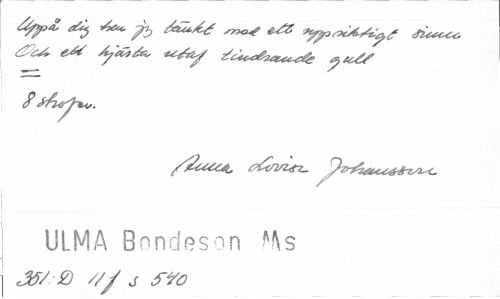 Uppå dig har jg tänkt med ett uppriktigt sinne
Och ett hjärta utaf tindrande gull
=
8 strofer.
Anna Lovisa Johansson
ULMA Bondeson Ms
351:D 11f s 540